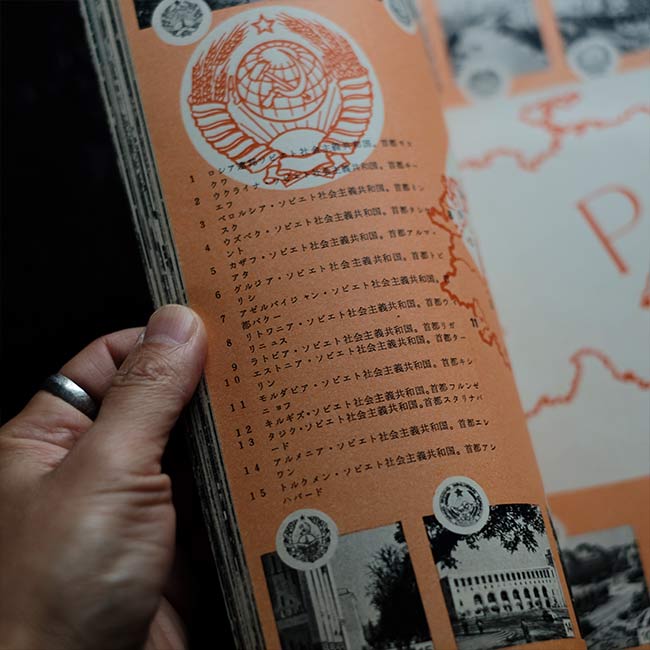 1 ロシア連邦ソビエト社会主義共和国。首都モス
クワ
2 ウクライナ・ソビエト社会主義共和国。首都キー
エフ
3 ベロルシア・ソビエト社会主義共和国。首都ミン
スク
4 ウズベク・ソビエト社会主義共和国。首都タシケ
ント
5 カザフ・ソビエト社会主義共和国。首都アルマ・
アタ
6 グルジア・ソビエト社会主義共和国。首都トビ
リシ
7 アゼルバイジャン・ソビエト社会主義共和国。首
都バクー
8 リトワニア・ソビエト社会主義共和国。首都ウ
リニュス
9 ラトビア・ソビエト社会主義共和国。首都リガ
10 エストニア・ソビエト社会主義共和国。首都ター
リン
11 モルダビア・ソビエト社会主義共和国。首都キシ
ニョフ
12 キルギズ・ソビエト社会主義共和国。首都フルンゼ
13 タジク・ソビエト社会主義共和国。首都スタリナバ
ード
14 アルメニア・ソビエト社会主義共和国。首都エレ
ワン
15 トルクメン・ソビエト社会主義共和国。首都アシ
ハバード
11
P